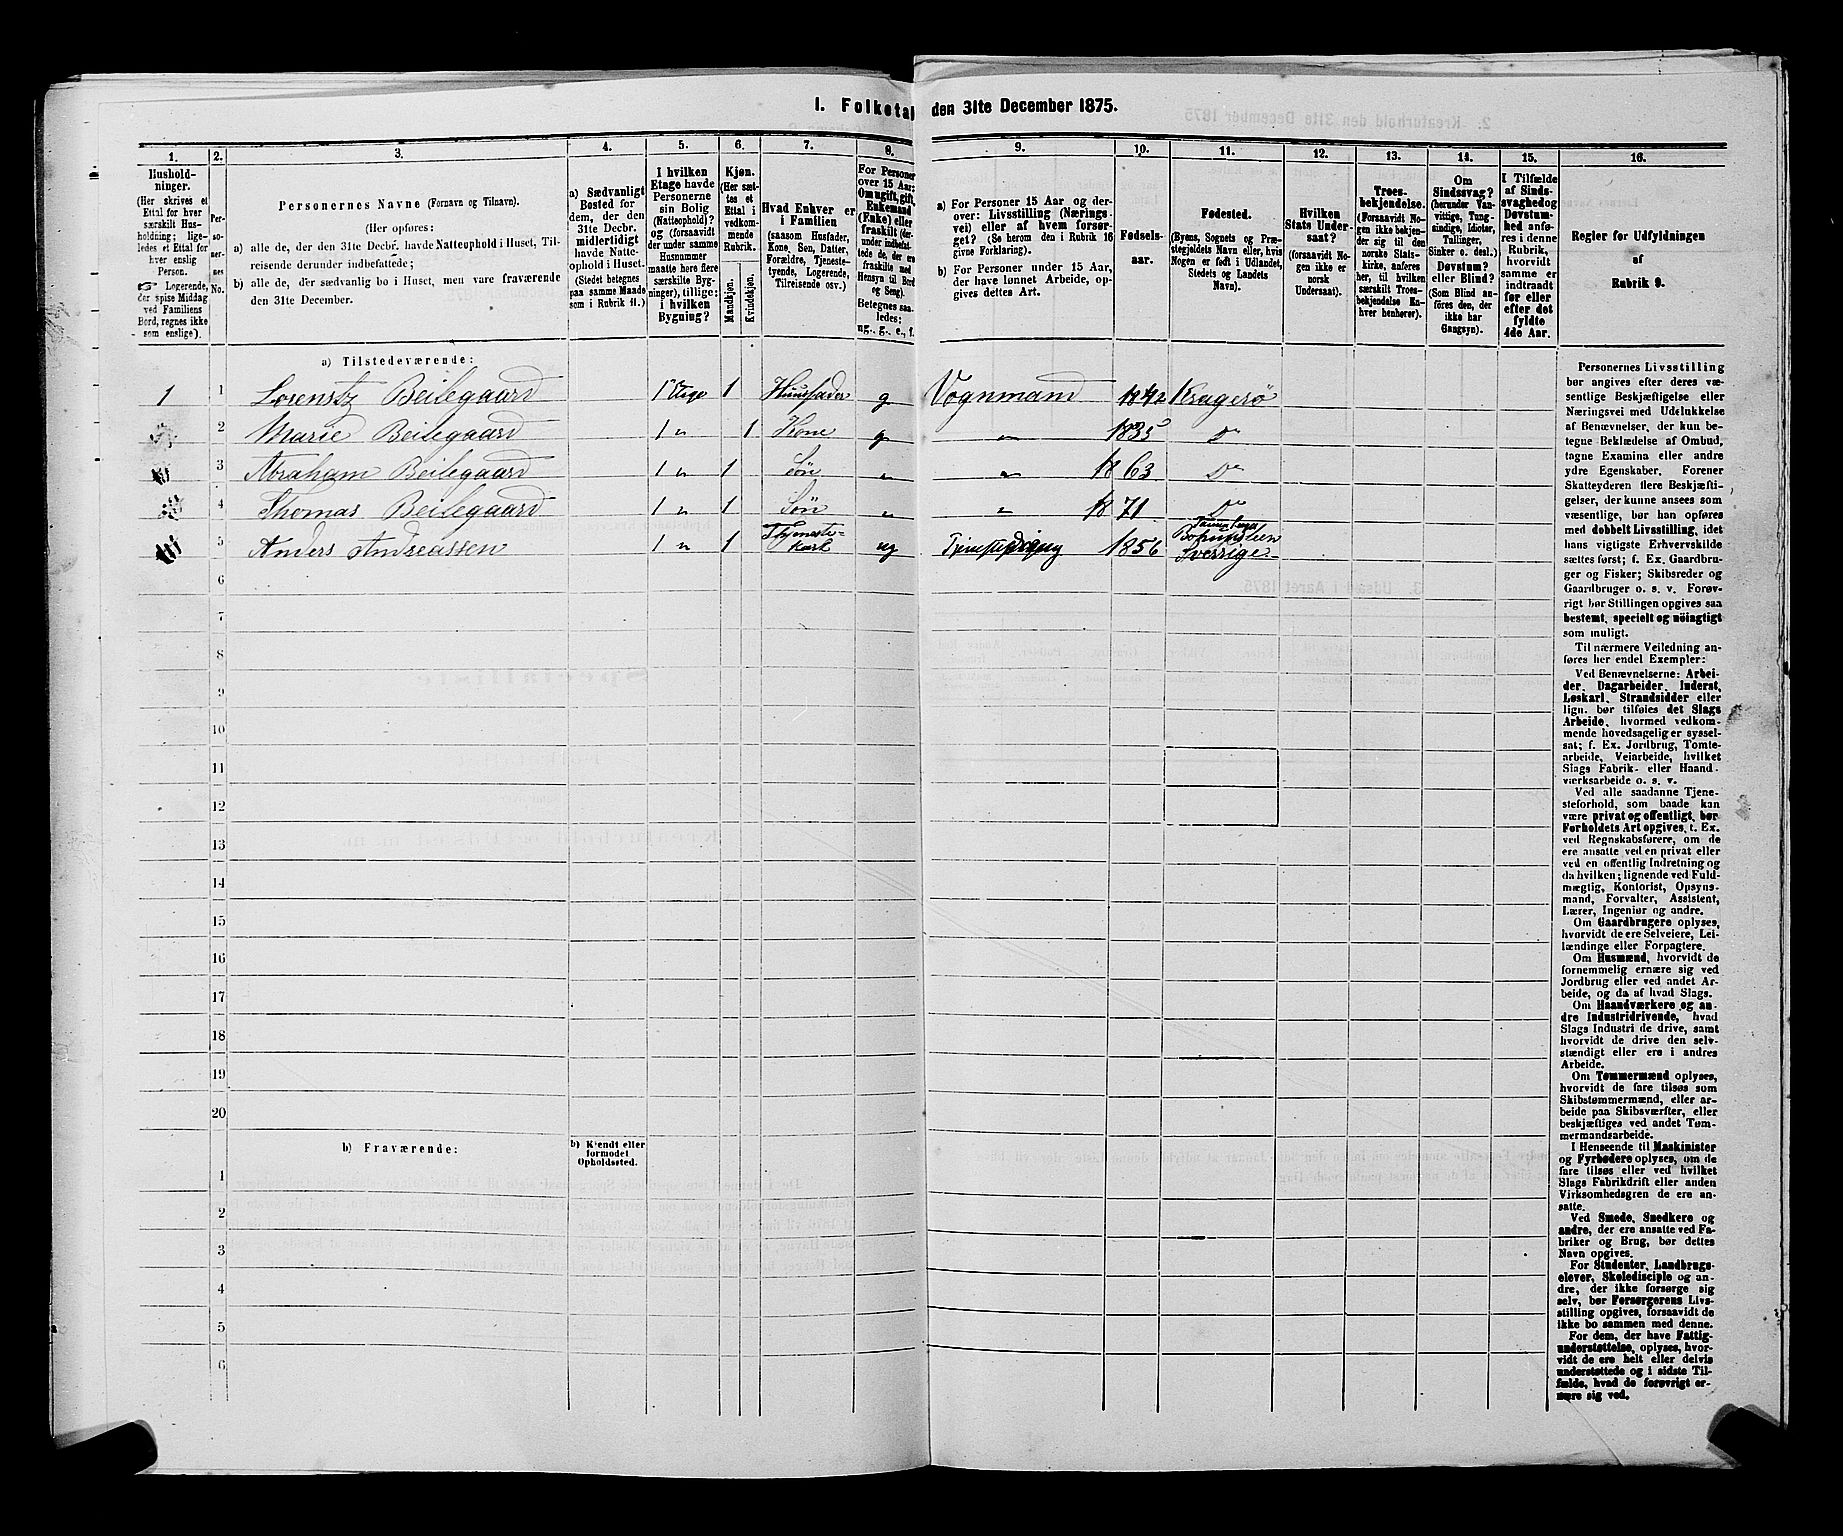 1. Folketal den 31te December 1875.
1. 2. 3. 4. 5. 6. 7. 8. 9. 10. 11. 12. 13. 14. 15. 16.
Hushold-
ninger.
(Her skrives et
Ettal for hver
særskilt Hus-
holdning; lige-
ledes et Ettal for
hver enslig
Person.
☞ Logerende,
der spise Middag
ved Familiens
Bord, regnes ikke
som enslige).
Per-
so-
ner-
nes
No.
Personernes Navne (Fornavn og Tilnavn).
(Her opføres:
a) alle de, der den 31te Decbr. havde Natteophold i Huset, Til-
reisende derunder indbefattede;
b) alle de, der sædvanlig bo i Huset, men vare fraværende
den 31te December.
a) Sædvanligt
Bosted for
dem, der den
31te Decbr.
midlertidigt
havde Natte-
ophold i Huset.
(Stedet betegnes
paa samme Maade
som i Rubrik 11.)
I hvilken
Etage havde
Personerne
sin Bolig
(Natteophold)?
og (forsaavidt
der under samme
Husnummer
maatte høre flere
særskilte Byg-
ninger), tillige: i
hvilken
Bygning?
Kjøn.
(Her sæt-
tes et
Ettal i
vedkom-
mende
Rubrik.
Mandkjøn.
Kvindekjøn.
Hvad Enhver er
i Familien
(saasom Husfader,
Kone, Søn, Datter,
Forældre, Tjeneste-
tyende, Logerende,
Tilreisende osv.)
For Personer
over 15 Aar:
Om ugift, gift,
Enkemand
(Enke) eller
fraskilt (der-
under indbefat-
tede de, der ere
fraskilte med
Hensyn til Bord
og Seng).
Betegnes saa-
ledes:
ug., g., e., f.
a) For Personer 15 Aar og der-
over: Livsstilling (Nærings-
vei) eller af hvem forsør-
get? (Se herom den i Rubrik 16
givne Forklaring).
b) For Personer under 15 Aar,
der have lønnet Arbeide, op-
gives dettes Art.
Fødsels-
aar.
Fødested.
(Byens, Sognets og Præ-
stegjeldets Navn eller, hvis
Nogen er født i Udlandet,
Stedets og Landets
Navn).
Hvilken
Stats Under-
saat?
(forsaavidt No-
gen ikke er
norsk
Undersaat).
Troes-
bekjendelse.
(Forsaavidt No-
gen ikke bekjen-
der sig til den
norske Stats-
kirke, anføres
her, til hvilken
særskilt Troes-
bekjendelse En-
hver henhører).
Om
Sindssvag?
(herunder Van-
vittige, Tung-
sindige, Idioter,
Tullinger,
Sinker o. desl.)
Døvstum?
eller Blind?
(Som Blind an-
føres den, der
ikke har
Gangsyn).
I Tilfælde
af Sinds-
svaghed og
Døvstum-
hed anfø-
res i denne
Rubrik,
hvorvidt
samme er
indtraadt
før eller
efter det
fyldte
4de Aar.
Regler før Udfyldningen
af
Rubrik 9.
a) Tilstedeværende:
1 1 Lorenstz Beilegaard 1ste Etage 1 Huusfader g Vognmand 1842 Kragerö
2 Marie Beilegaard 1 " 1 Kone g " 1835 Do
3 Abraham Beilegaard 1 " 1 Sön " " 1863 Do
4 Thomas Beilegaard 1 " 1 Sön " " 1871 Do
5 Anders Andreassen 1 " 1 Thjeneste-
karl ug 1856 Sverrige
6
7
8
9
10
11
12
13
14
15
16
17
18
19
20
b) Fraværende: b) Kjendt eller
formodet
Opholdssted.
1
2
3
4
5
6
Personernes Livsstilling
bør angives efter deres væ-
sentlige Beskjæftigelse eller
Næringsvei med Udelukkelse
af Benævnelser, der kun be-
tegne Beklædelse af Ombud,
tagne Examina eller andre
ydre Egenskaber. Forener
Skatteyderen flere Beskjæfti-
gelser, der kunne ansees som
væsentlige, bør han opføres
med dobbelt Livsstilling, idet
hans vigtigste Erhvervskilde
sættes først; f. Ex. Gaardbru-
ger og Fisker; Skibsreder og
Gaardbruger o. s. v. Forøv-
rigt bør Stillingen opgives saa
bestemt, specielt og nöiagtigt
som muligt.
Til nærmere Veiledning an-
føres her endel Exempler:
Ved Benævnelserne: Arbei-
der, Dagarbeider, Inderst,
Løskarl, Strandsidder eller
lign. bør tilføies det Slags
Arbeide, hvormed vedkom-
mende hovedsagelig er syssel-
sat; f. Ex. Jordbrug, Tomte-
arbeide, Veiarbeide, hvilket
Slags Fabrik- eller Haand-
værksarbeide o. s. v.
Ved alle saadanne Tjene-
steforhold, som baade kan
være privat og offentligt, bør
Forholdets Art opgives, t. Ex.
ved Regnskabsførere, om de
ere ansatte ved en privat eller
ved en offentlig Indretning og
da hvilken; lignende ved Fuld-
mægtig, Kontorist, Opsyns-
mand, Forvalter, Assistent,
Lærer, Ingeniør og andre.
Om Gaardbrugere oplyses,
hvorvidt de ere Selveiere, Lei-
lændinge eller Forpagtere.
Om Husmænd, hvorvidt de
fornemmelig ernære sig ved
Jordbrug eller ved andet Ar-
beide, og da af hvad Slags.
Om Haandværkere og an-
dre Industridrivende, hvad
Slags Industri de drive, samt
hvorvidt de drive den selv-
stændigt eller ere i andres
Arbeide.
Om Tømmermænd oplyses,
hvorvidt de fare tilsøs som
Skibstømmermænd, eller ar-
beide paa Skibsværfter, eller
beskjæftiges ved andet Tøm-
mermandsarbeide.
I Henseende til Maskinister
og Fyrbødere oplyses, om de
fare tilsøs eller ved hvilket
Slags Fabrikdrift eller anden
Virksomhedsgren de ere an-
satte.
Ved Smede, Snedkere og
andre, der ere ansatte ved Fa-
briker og Brug, bør dettes
Navn opgives.
For Studenter, Landbrugs-
elever, Skoledisciple og an-
dre, der ikke forsørge sig
selv, bør Forsørgerens Livs-
stilling opgives, forsaavidt de
ikke bo sammen med denne.
For dem, der have Fattig-
understøttelse, oplyses, hvor-
vidt de ere helt eller delvis
understøttede og i sidste Til-
fælde, hvad de forøvrigt er-
nære sig ved.